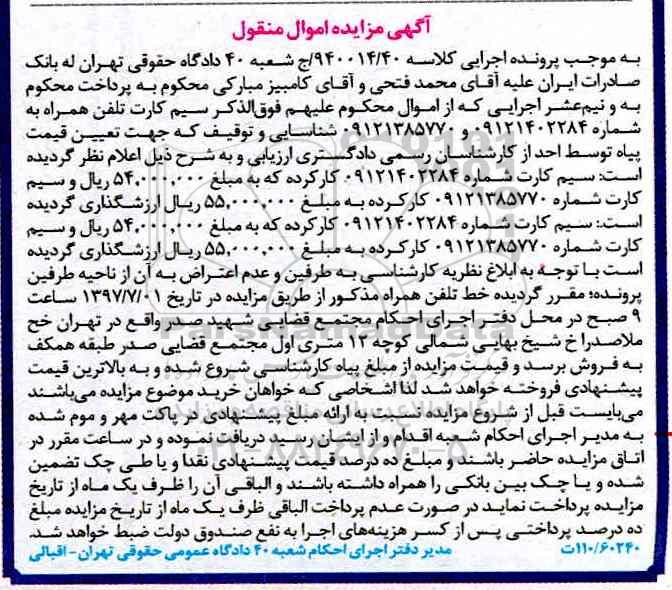 آگهی مزایده اموال منقول
به موجب پرونده اجرایی کلاسه ۹۴۰۰۱۴/۴۰/ج شعبه ۴۰ دادگاه حقوقی تهران له بانک
صادرات ایران علیه آقای محمد فتحی و آقای کامبیز مبارکی محکوم به پرداخت محکوم
به و نیم‌عشر اجرایی که از اموال محکوم علیهم فوق‌الذکر سیم کارت تلفن همراه به
شماره ۰۹۱۲۱۴۰۲۲۸۴ و ۰۹۱۲۱۳۸۵۷۷۰ شناسایی و توقیف که جهت تعیین قیمت
پیاه توسط احد از کارشناسان رسمی دادگستری ارزیابی و به شرح ذیل اعلام نظر گردیده
است: سیم کارت شماره ۰۹۱۲۱۴۰۲۲۸۴ کارکرده که به مبلغ ۵۴,۰۰۰,۰۰۰ ریال و سیم
کارت شماره ۰۹۱۲۱۳۸۵۷۷۰ کارکرده به مبلغ ۵۵,۰۰۰,۰۰۰ ریال ارزشگذاری گردیده
است.: سیم کارت شماره ۰۹۱۲۱۴۰۲۲۸۴ کارکرده که به مبلغ ۵۴,۰۰۰,۰۰۰ ریال و سیم
کارت شماره ۰۹۱۲۱۳۸۵۷۷۰ کارکرده به مبلغ ۵۵,۰۰۰,۰۰۰ ریال ارزشگذاری گردیده
است با توجه به ابلاغ نظریه کارشناسی به طرفین و عدم اعتراض به آن از ناحیه طرفین
پرونده؛ مقرر گردیده خط تلفن همراه مذکور از طریق مزایده در تاریخ ۱۳۹۷/۷/۰۱ ساعت
۹ صبح در محل دفتر اجرای احکام مجتمع قضایی شهید صدر واقع در تهران خح
ملاصدرا خ شیخ بهایی شمالی کوچه ۱۳ متری اول مجتمع قضایی صدر طبقه همکف
به فروش برسد و قیمت مزایده از مبلغ پیاه کارشناسی شروع شده و به بالاترین قیمت
پیشنهادی فروخته خواهد شد لذا اشخاصی که خواهان خرید موضوع مزایده می‌باشند
می‌بایست قبل از شروع مزایده نسبت به ارائه مبلغ پیشنهادی در پاکت مهر و موم شده
به مدیر اجرای احکام شعبه اقدام و از ایشان رسید دریافت نموده و در ساعت مقرر در
اتاق مزایده حاضر باشند و مبلغ ده درصد قیمت پیشنهادی نقدا و یا طی چک تضمین
شده و یا چک بین بانکی را همراه داشته باشند و الباقی آن را ظرف یک ماه از تاریخ
مزایده پرداخت نماید در صورت عدم پرداخت الباقی ظرف یک ماه از تاریخ مزایده مبلغ
ده درصد پرداختی پس از کسر هزینه‌های اجرا به نفع صندوق دولت ضبط خواهد شد.
۱۱۰/۶۰۲۴۰ت مدیر دفتر اجرای احکام شعبه ۴۰ دادگاه عمومی حقوقی تهران - اقبالی